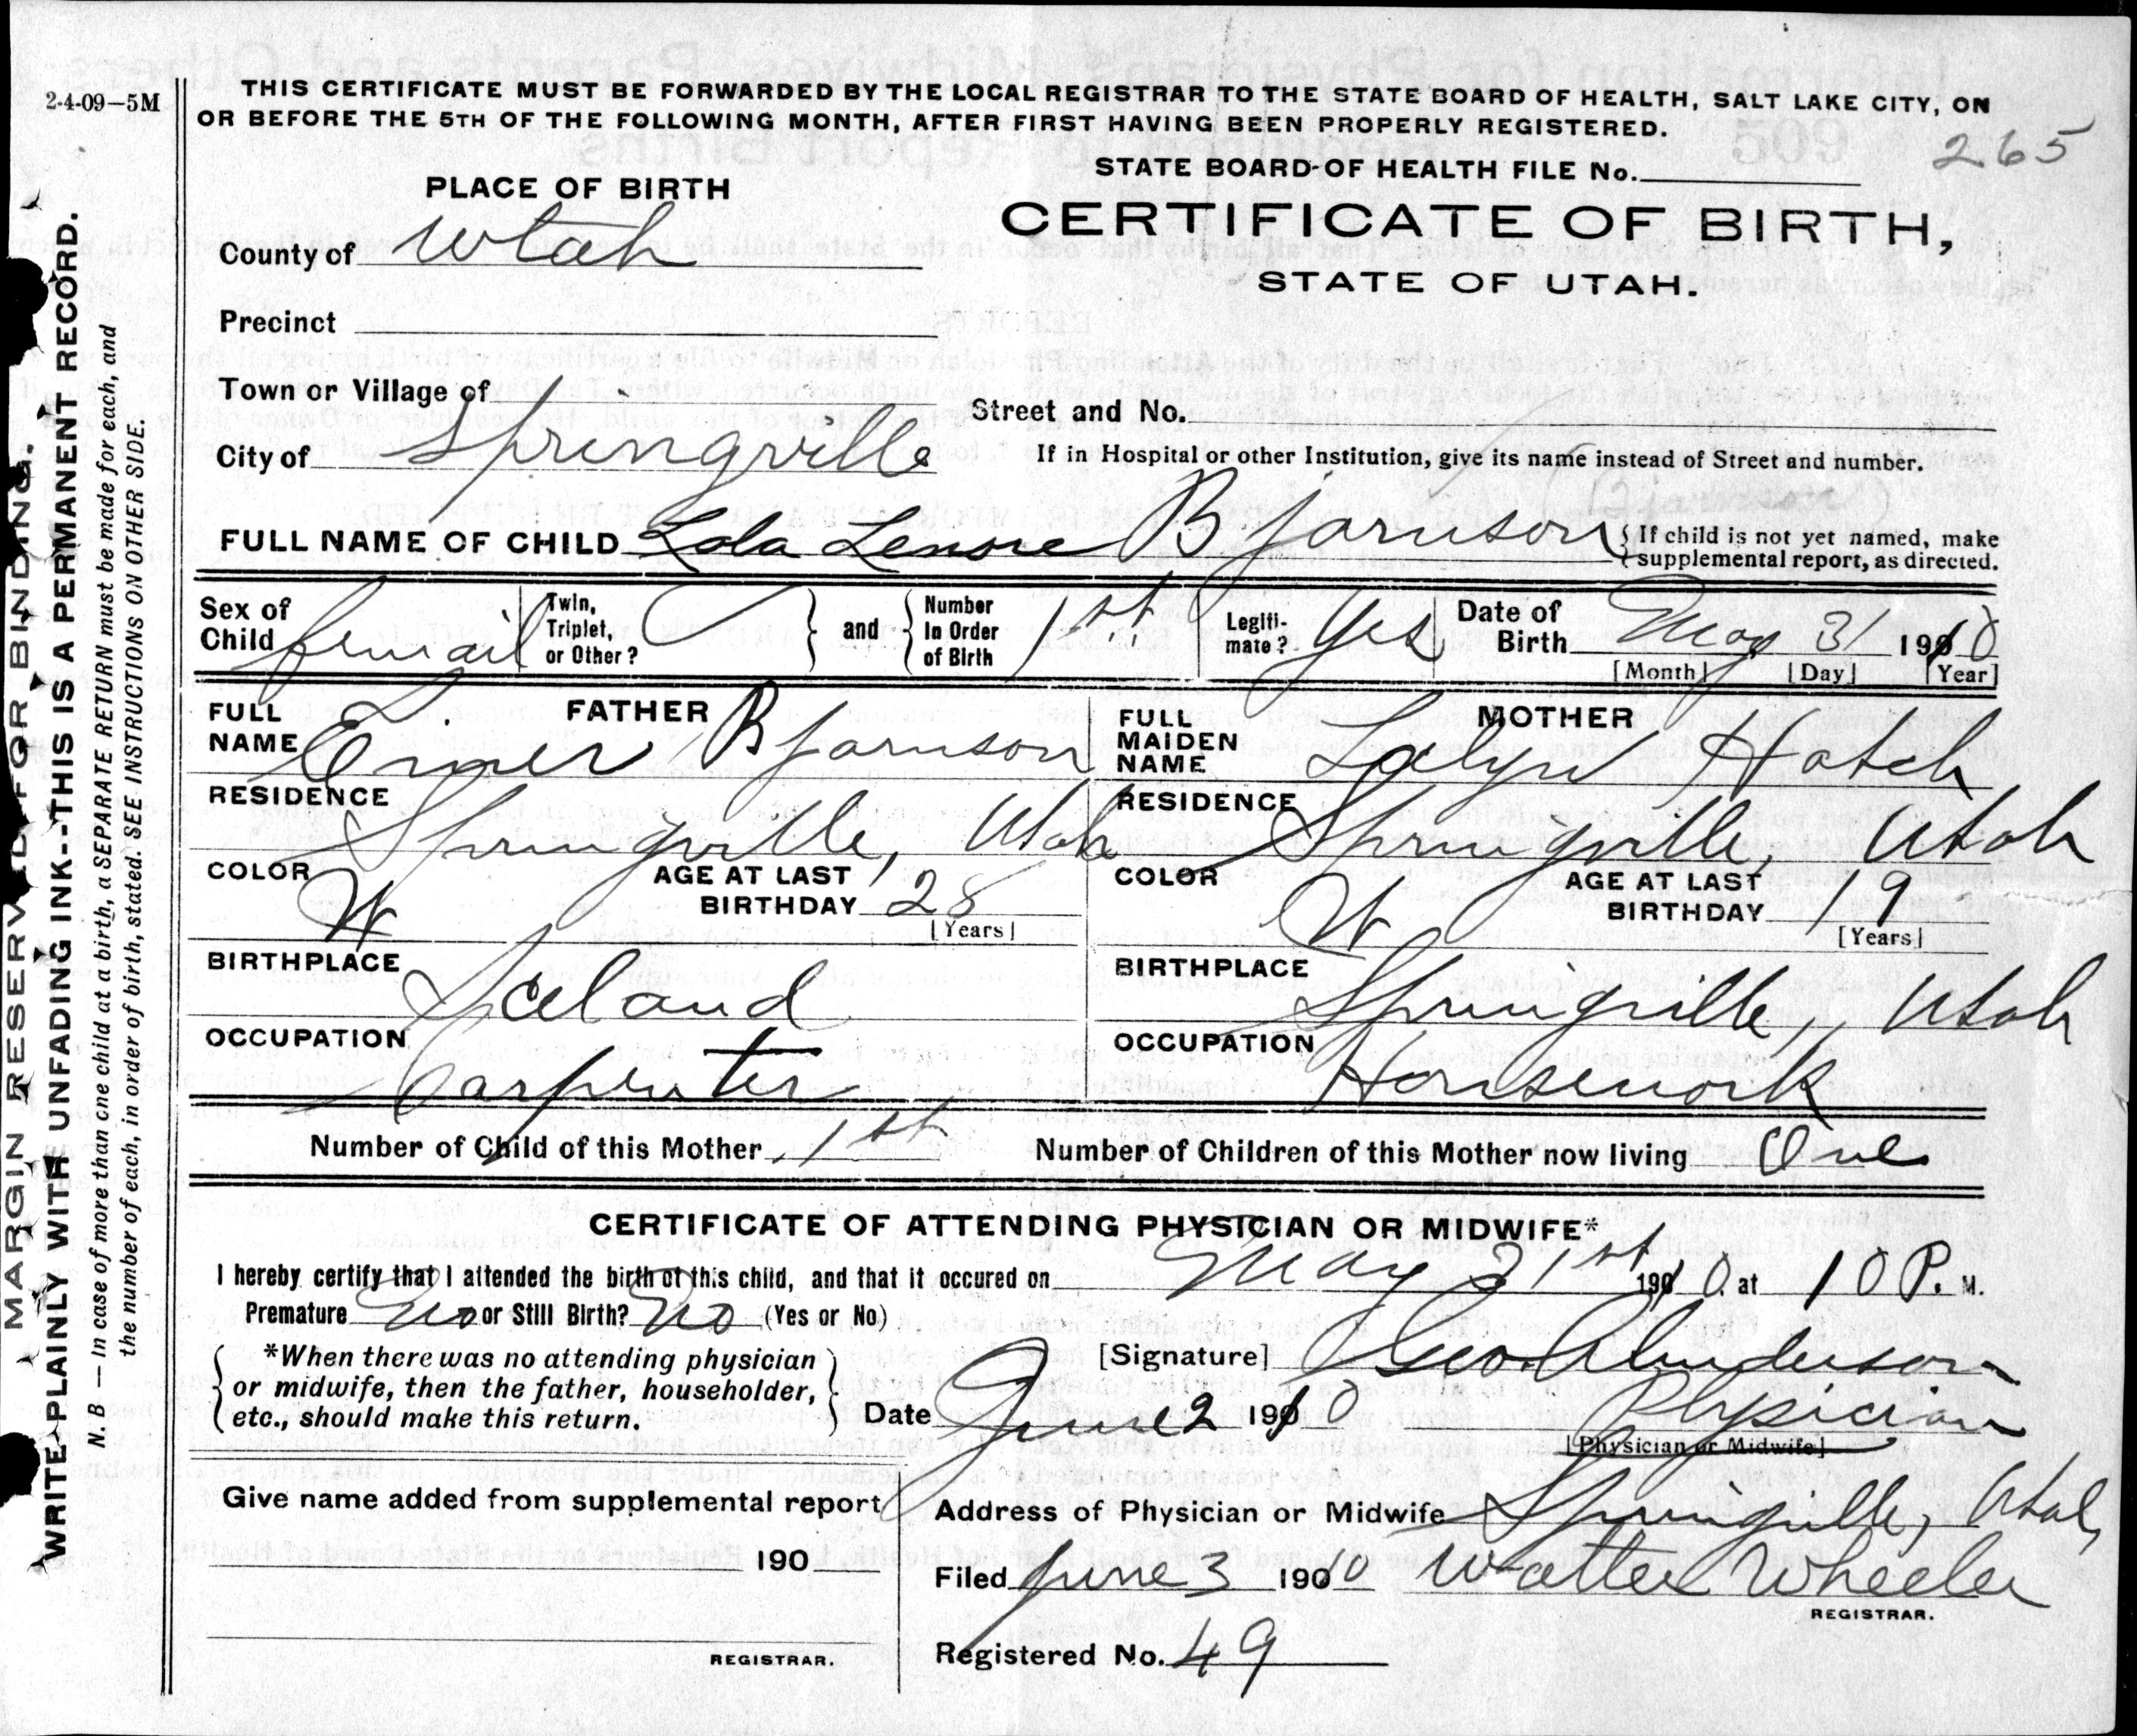 2-4-09-5M
THIS CERTIFICATE MUST BE FORWARDED BY THE LOCAL REGISTRAR TO THE STATE BOARD OF HEALTH, SALT LAKE CITY, ON
OR BEFORE THE 5TH OF THE FOLLOWING MONTH, AFTER FIRST HAVING BEEN PROPERLY REGISTERED.
265
STATE BOARD OF HEALTH FILE No.
CERTIFICATE OF BIRTH,
STATE OF UTAH.
PLACE OF BIRTH
County of Utah
Precinct
Town or Village of
City of Springville
Street and No.
If in Hospital or other Institution, give its name instead of Street and number.
(Bjarnson)
FULL NAME OF CHILD Lola Lenore Bjarnson
If child is not yet named, make
supplemental report, as directed.
Sex of Child femail
Twin, Triplet, or Other?
and
Number In Order of Birth 1st
Legiti-mate? Yes
Date of Birth May 31 1910
[Month] [Day] [Year]
FATHER
FULL NAME Einer Bjarnson
RESIDENCE Springville, Utah
COLOR W
AGE AT LAST BIRTHDAY 28
[Years]
BIRTHPLACE Iceland
OCCUPATION Carpenter
MOTHER
FULL MAIDEN NAME Lalyn Hatch
RESIDENCE Springville, Utah
COLOR W
AGE AT LAST BIRTHDAY 19
[Years]
BIRTHPLACE Springville, Utah
OCCUPATION Housework
Number of Child of this Mother 1st
Number of Children of this Mother now living One
CERTIFICATE OF ATTENDING PHYSICIAN OR MIDWIFE*
I hereby certify that I attended the birth of this child, and that it occured on May 31st 1910 at 10 P. M.
Premature No or Still Birth? No (Yes or No)
*When there was no attending physician
or midwife, then the father, householder,
etc., should make this return.
[Signature] Geo. Anderson
Physician
[Physician or Midwife]
Date June 2 1910
Give name added from supplemental report
190
REGISTRAR.
Address of Physician or Midwife Springville, Utah
Filed June 3 1910 Walter Wheeler
REGISTRAR.
Registered No. 49
MARGIN RESERVED FOR BINDING.
WRITE PLAINLY WITH UNFADING INK--THIS IS A PERMANENT RECORD.
N. B — In case of more than one child at a birth, a SEPARATE RETURN must be made for each, and
the number of each, in order of birth, stated. SEE INSTRUCTIONS ON OTHER SIDE.